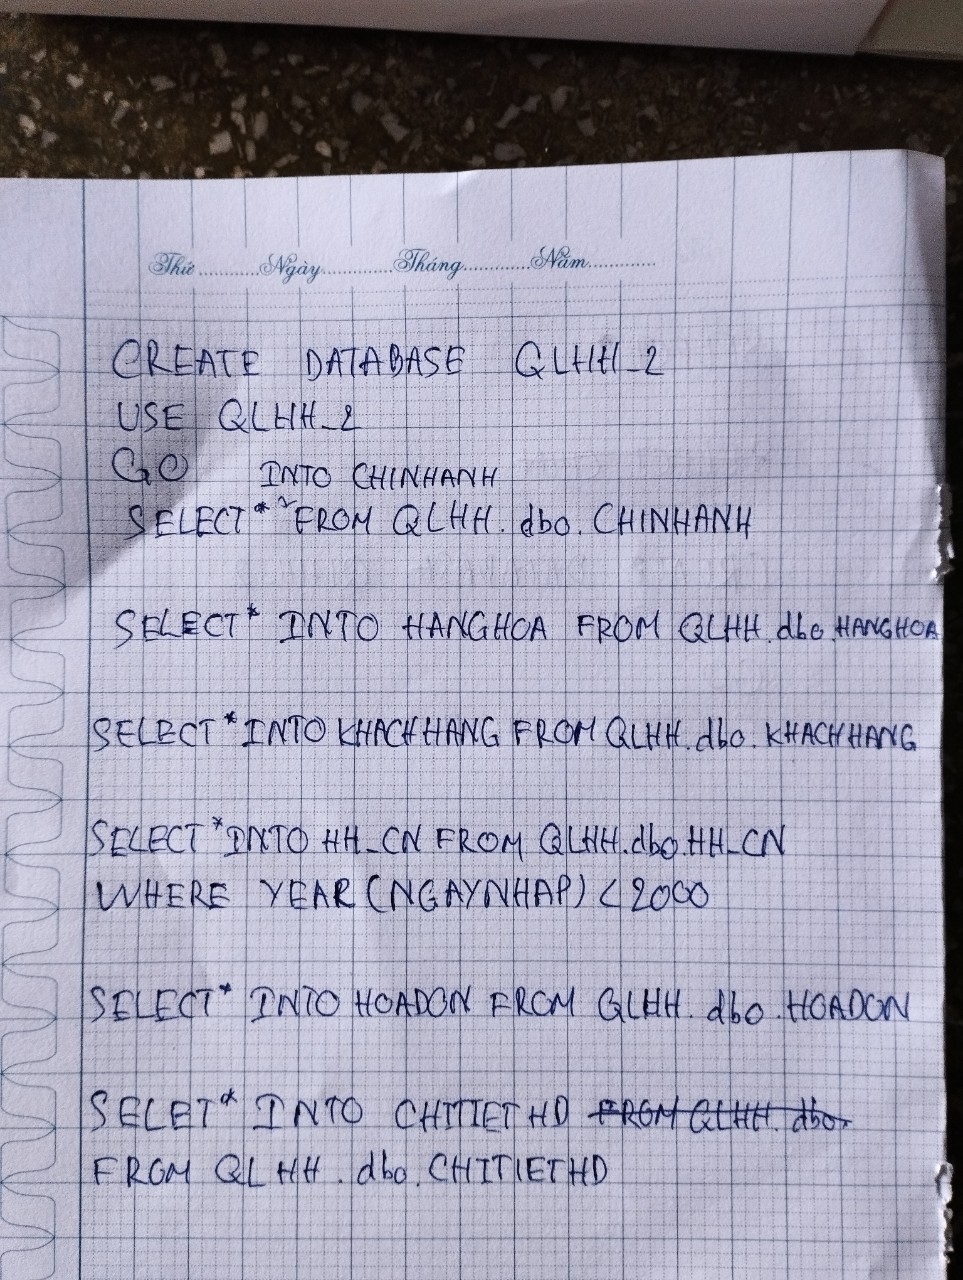 Thứ............Ngày............Tháng............Năm............
CREATE DATABASE QLHH_2
USE QLHH_2
GO INTO CHINHANH
SELECT * FROM QLHH.dbo.CHINHANH
SELECT * INTO HANGHOA FROM QLHH.dbo.HANGHOA
SELECT * INTO KHACHHANG FROM QLHH.dbo.KHACHHANG
SELECT * INTO HH_CN FROM QLHH.dbo.HH_CN
WHERE YEAR (NGAYNHAP) < 2000
SELECT * INTO HOADON FROM QLHH.dbo.HOADON
SELET * INTO CHITIETHD FROM QLHH.dbo.
FROM QLHH.dbo.CHITIETHD